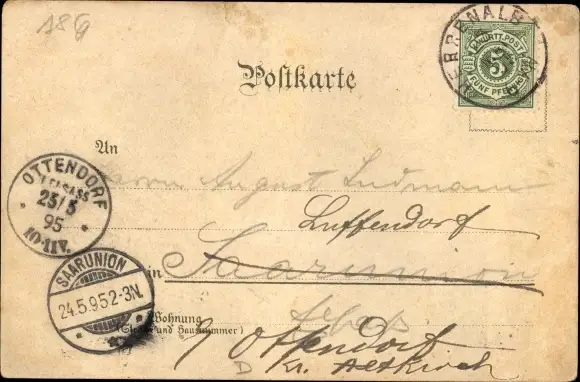 A8G
HERRENALB
K. WÜRTT. POST
5
FÜNF PFENNIG
Postkarte
An
Herrn August Ludmann
Luffendorf
in Saarunion
Elsass
Wohnung
(Straße und Hausnummer)
Ottendorf
Kr. Altkirch
D
OTTENDORF
i. ELSASS
25/5
95
10-11V.
SAARUNION
24.5.95.2-3N.